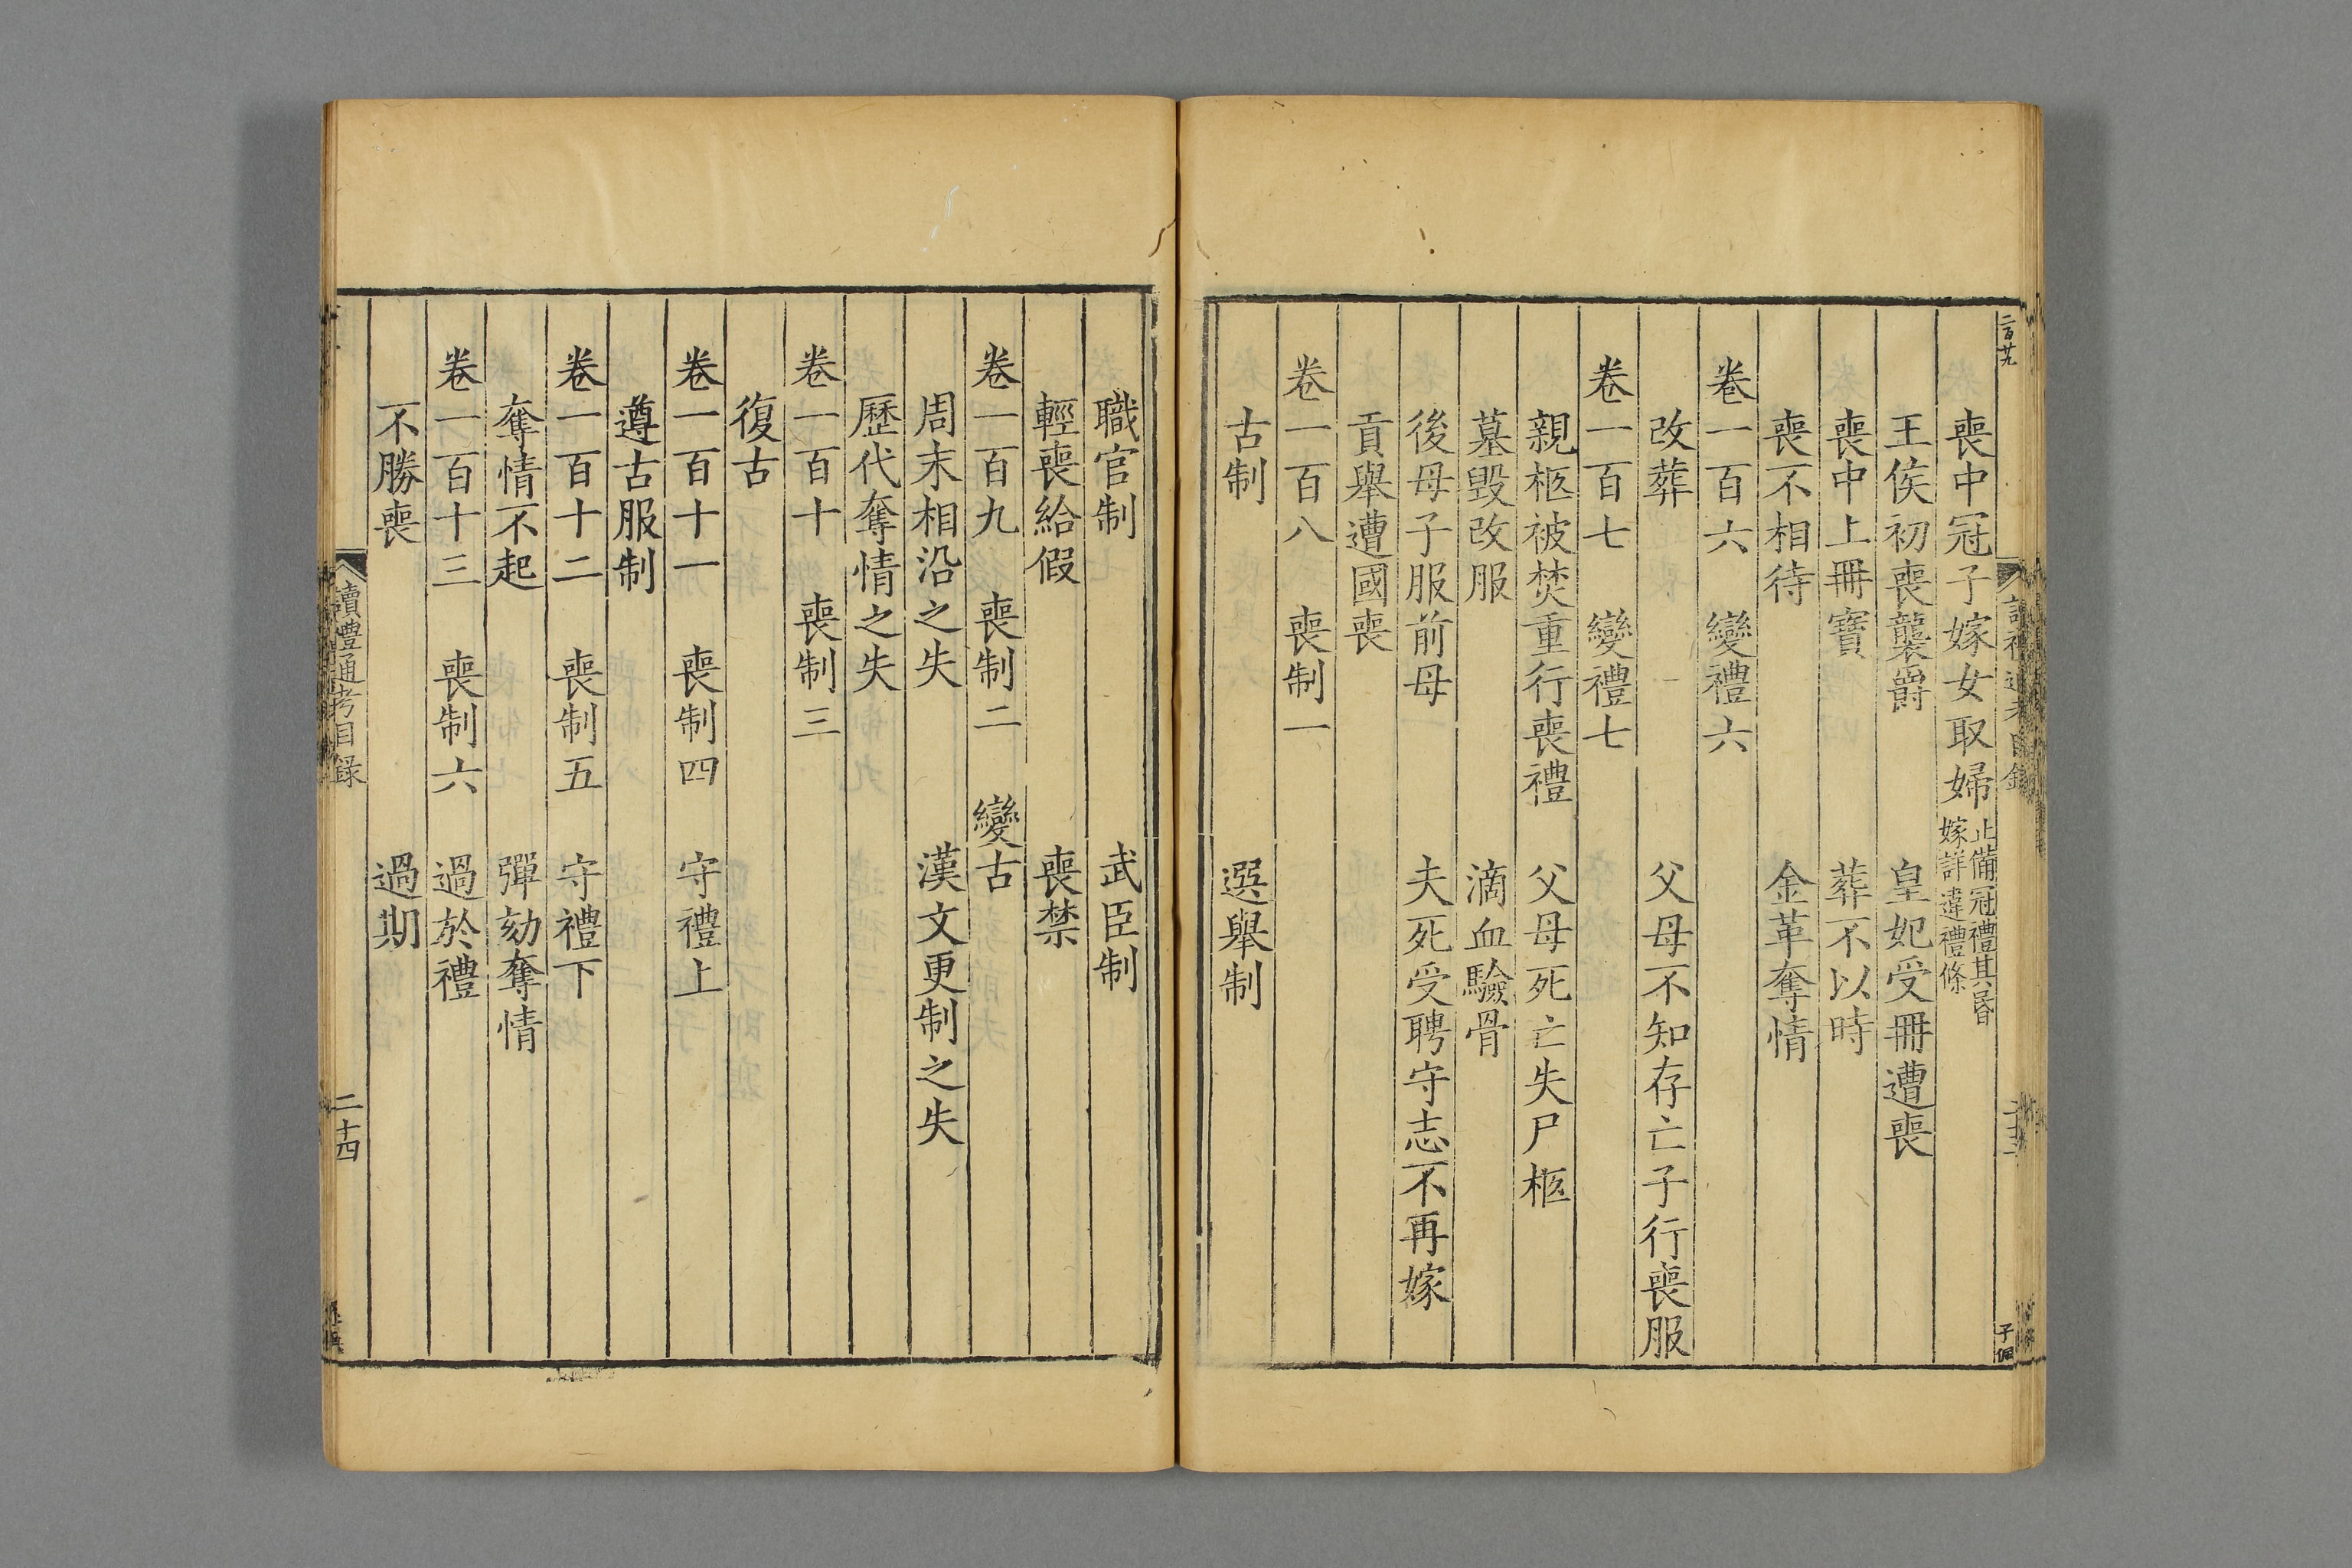 喪中冠子嫁女取婦 止備冠禮其昏
嫁詳違禮條
王侯初喪襲爵　皇妃受冊遭喪
喪中上冊寶　葬不以時
喪不相待　金革奪情
卷一百六　變禮六
改葬　父母不知存亡子行喪服
卷一百七　變禮七
親柩被焚重行喪禮　父母死亡失尸柩
墓毀改服　滴血驗骨
後母子服前母　夫死受聘守志不再嫁
貢舉遭國喪
卷一百八　喪制一
古制　選舉制
職官制　武臣制
輕喪給假　喪禁
卷一百九　喪制二　變古
周末相沿之失　漢文更制之失
歷代奪情之失
卷一百十　喪制三
復古
卷一百十一　喪制四　守禮上
遵古服制
卷一百十二　喪制五　守禮下
奪情不起　彈劾奪情
卷一百十三　喪制六　過於禮
不勝喪　過期
讀禮通考目録
二十四